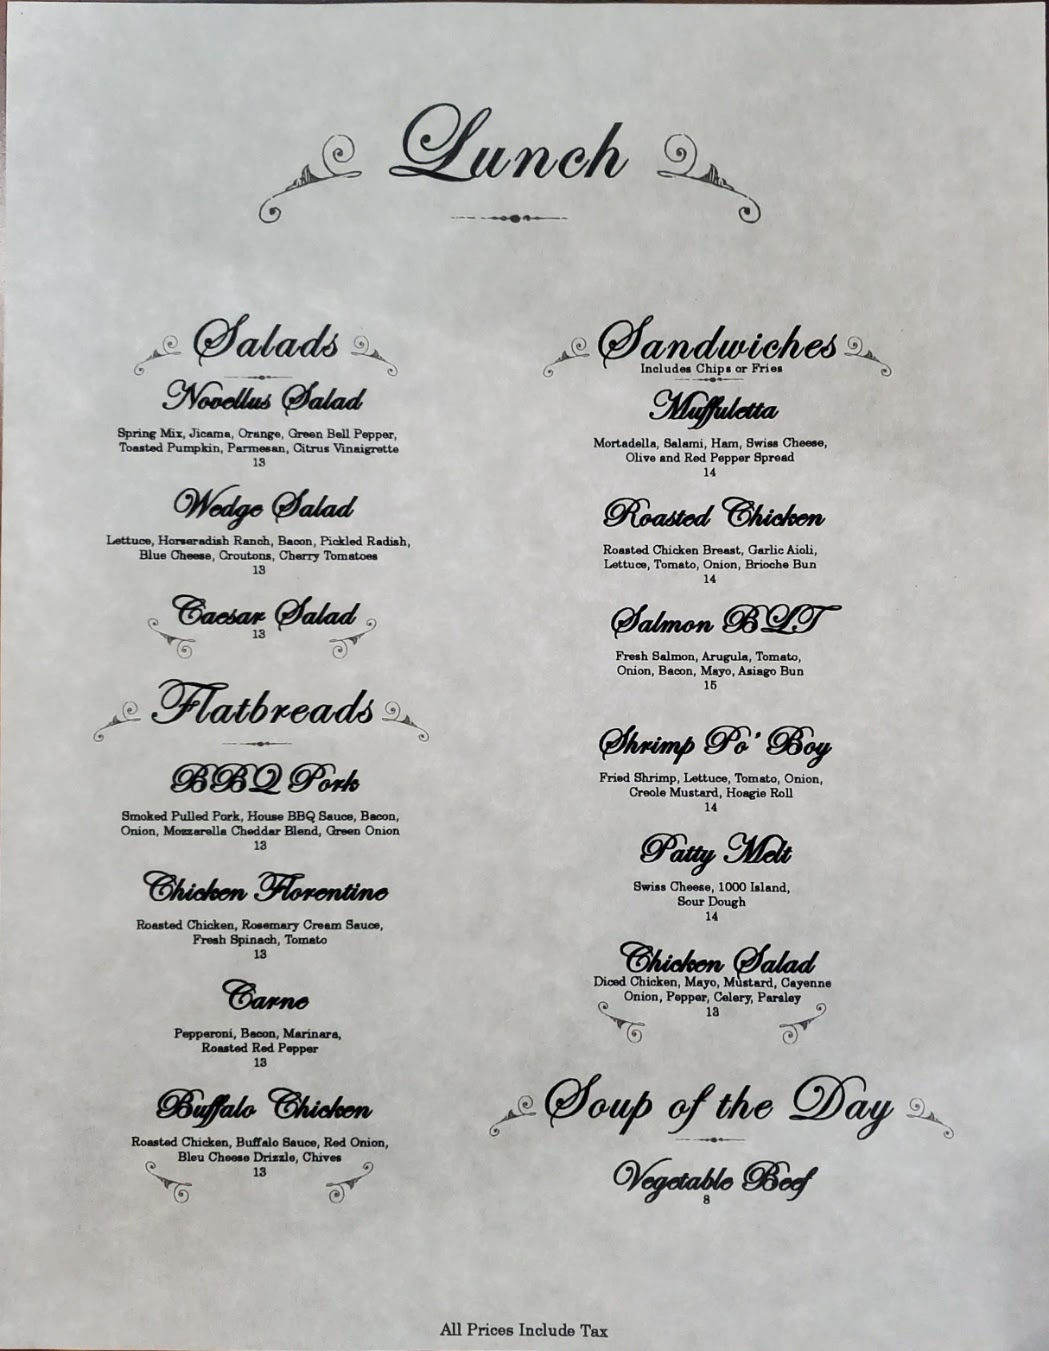 Lunch
Salads
Novellus Salad
Spring Mix, Jicama, Orange, Green Bell Pepper,
Toasted Pumpkin, Parmesan, Citrus Vinaigrette
13
Wedge Salad
Lettuce, Horseradish Ranch, Bacon, Pickled Radish,
Blue Cheese, Croutons, Cherry Tomatoes
13
Caesar Salad
13
Flatbreads
BBQ Pork
Smoked Pulled Pork, House BBQ Sauce, Bacon,
Onion, Mozzarella Cheddar Blend, Green Onion
13
Chicken Florentine
Roasted Chicken, Rosemary Cream Sauce,
Fresh Spinach, Tomato
13
Carne
Pepperoni, Bacon, Marinara,
Roasted Red Pepper
13
Buffalo Chicken
Roasted Chicken, Buffalo Sauce, Red Onion,
Bleu Cheese Drizzle, Chives
13
Sandwiches
Includes Chips or Fries
Muffuletta
Mortadella, Salami, Ham, Swiss Cheese,
Olive and Red Pepper Spread
14
Roasted Chicken
Roasted Chicken Breast, Garlic Aioli,
Lettuce, Tomato, Onion, Brioche Bun
14
Salmon BLT
Fresh Salmon, Arugula, Tomato,
Onion, Bacon, Mayo, Asiago Bun
15
Shrimp Po' Boy
Fried Shrimp, Lettuce, Tomato, Onion,
Creole Mustard, Hoagie Roll
14
Patty Melt
Swiss Cheese, 1000 Island,
Sour Dough
14
Chicken Salad
Diced Chicken, Mayo, Mustard, Cayenne
Onion, Pepper, Celery, Parsley
13
Soup of the Day
Vegetable Beef
8
All Prices Include Tax